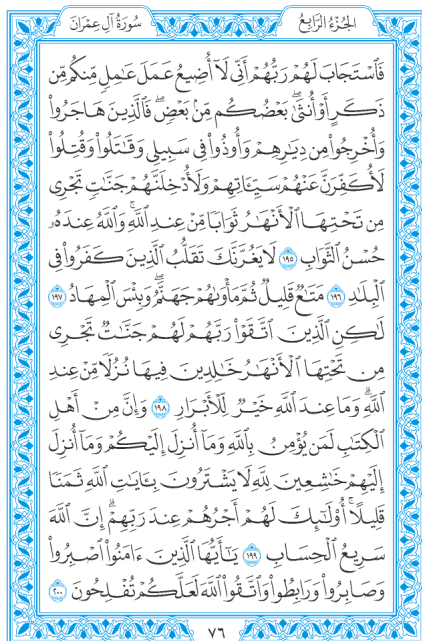 الجُزْءُ الرَّابِعُ
سُورَةُ آلِ عِمْرَانَ
فَٱسْتَجَابَ لَهُمْ رَبُّهُمْ أَنِّى لَآ أُضِيعُ عَمَلَ عَٰمِلٍ مِّنكُم مِّن
ذَكَرٍ أَوْ أُنثَىٰ ۖ بَعْضُكُم مِّنۢ بَعْضٍ ۖ فَٱلَّذِينَ هَاجَرُوا۟
وَأُخْرِجُوا۟ مِن دِيَٰرِهِمْ وَأُوذُوا۟ فِى سَبِيلِى وَقَٰتَلُوا۟ وَقُتِلُوا۟
لَأُكَفِّرَنَّ عَنْهُمْ سَيِّـَٔاتِهِمْ وَلَأُدْخِلَنَّهُمْ جَنَّٰتٍ تَجْرِى
مِن تَحْتِهَا ٱلْأَنْهَٰرُ ثَوَابًا مِّنْ عِندِ ٱللَّهِ ۗ وَٱللَّهُ عِندَهُۥ
حُسْنُ ٱلثَّوَابِ ١٩٥ لَا يَغُرَّنَّكَ تَقَلُّبُ ٱلَّذِينَ كَفَرُوا۟ فِى
ٱلْبِلَٰدِ ١٩٦ مَتَٰعٌ قَلِيلٌ ثُمَّ مَأْوَىٰهُمْ جَهَنَّمُ ۚ وَبِئْسَ ٱلْمِهَادُ ١٩٧
لَٰكِنِ ٱلَّذِينَ ٱتَّقَوْا۟ رَبَّهُمْ لَهُمْ جَنَّٰتٌ تَجْرِى
مِن تَحْتِهَا ٱلْأَنْهَٰرُ خَٰلِدِينَ فِيهَا نُزُلًا مِّنْ عِندِ
ٱللَّهِ ۗ وَمَا عِندَ ٱللَّهِ خَيْرٌ لِّلْأَبْرَارِ ١٩٨ وَإِنَّ مِنْ أَهْلِ
ٱلْكِتَٰبِ لَمَن يُؤْمِنُ بِٱللَّهِ وَمَآ أُنزِلَ إِلَيْكُمْ وَمَآ أُنزِلَ
إِلَيْهِمْ خَٰشِعِينَ لِلَّهِ لَا يَشْتَرُونَ بِـَٔايَٰتِ ٱللَّهِ ثَمَنًا
قَلِيلًا ۗ أُو۟لَٰٓئِكَ لَهُمْ أَجْرُهُمْ عِندَ رَبِّهِمْ ۗ إِنَّ ٱللَّهَ
سَرِيعُ ٱلْحِسَابِ ١٩٩ يَٰٓأَيُّهَا ٱلَّذِينَ ءَامَنُوا۟ ٱصْبِرُوا۟
وَصَابِرُوا۟ وَرَابِطُوا۟ وَٱتَّقُوا۟ ٱللَّهَ لَعَلَّكُمْ تُفْلِحُونَ ٢٠٠
٧٦